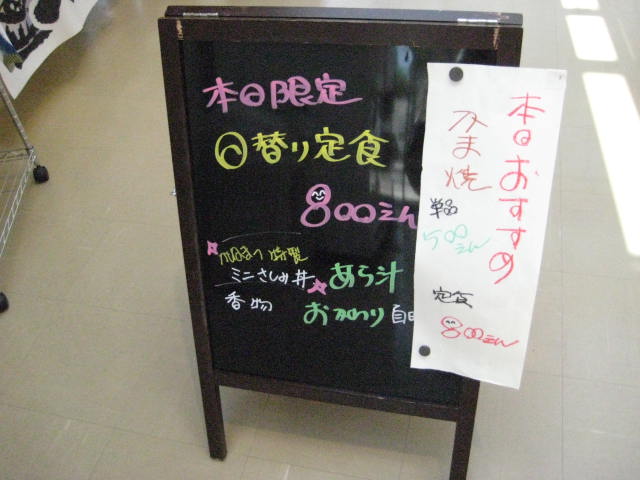 本日限定
日替り定食
800えん
特製
ミニさしみ丼
香物
あら汁
おかわり自由
本日おすすめ
かま焼
単品
500えん
定食
800えん